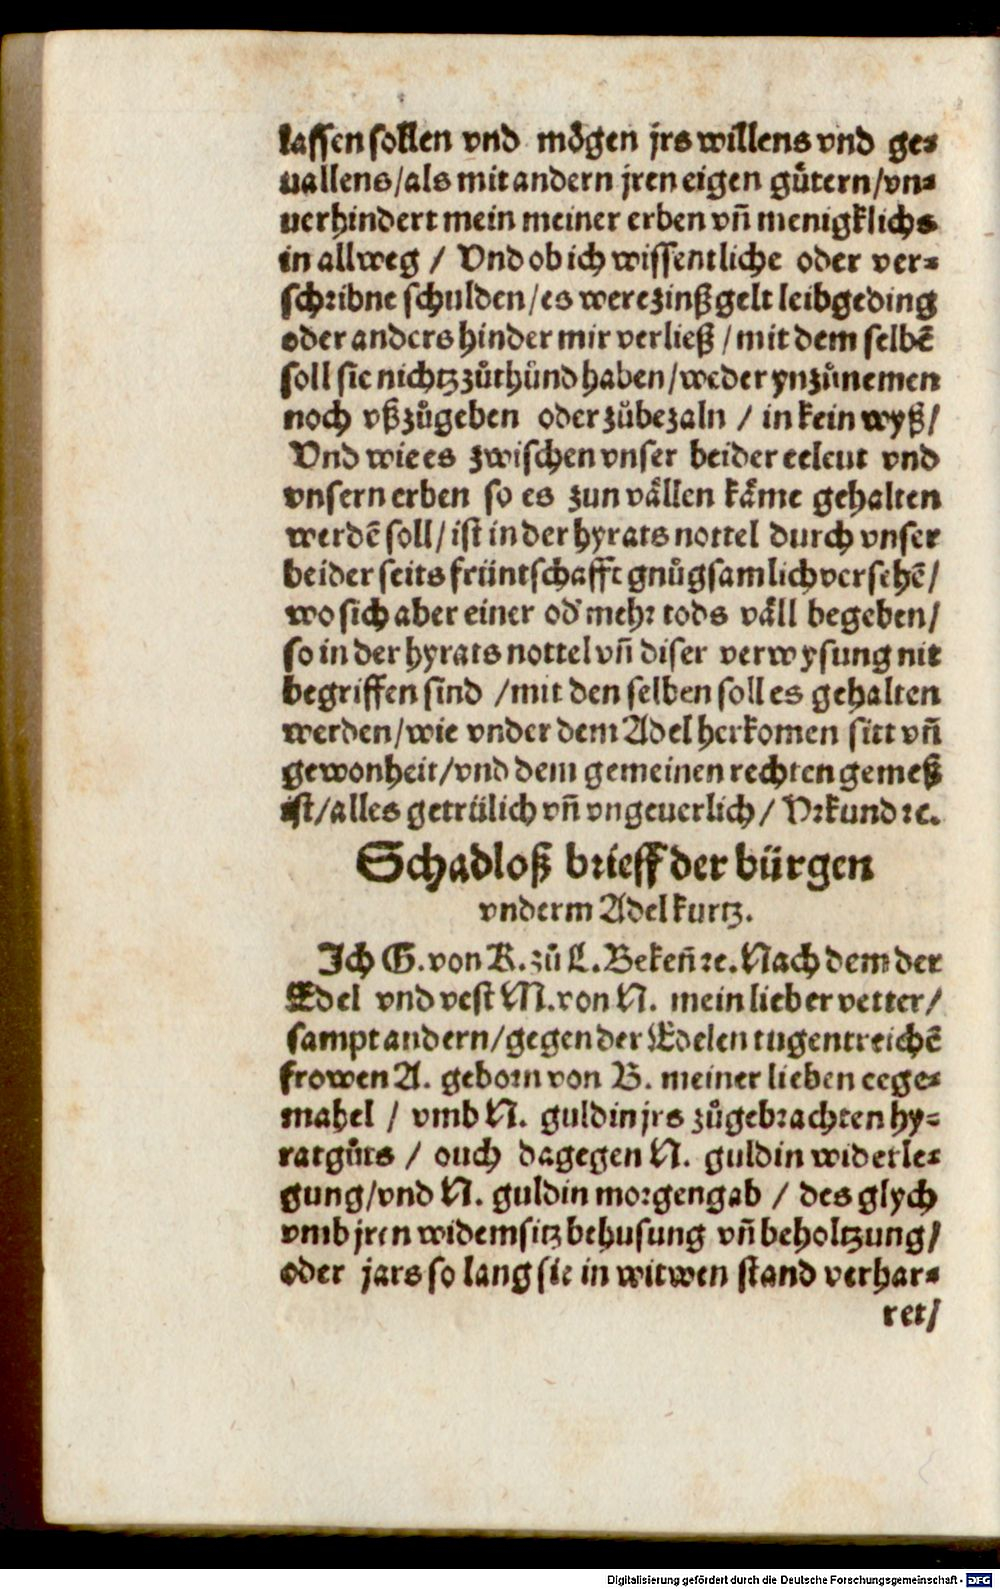 lassen sollen vnd mögen jrs willens vnd ge⸗
uallens/als mit andern jren eigen guͤtern/vn⸗
uerhindert mein meiner erben vñ menigklichs
in allweg / Vnd ob ich wissentliche oder ver⸗
schribne schulden/es were zinßgelt leibgeding
oder anders hinder mir verließ / mit dem selbē
soll sie nichtz zůthůnd haben/weder ynzůnemen
noch vßzůgeben oder zůbezaln / in kein wyß/
Vnd wie es zwischen vnser beider eeleut vnd
vnsern erben so es zun vällen käme gehalten
werdē soll/ist in der hyrats nottel durch vnser
beider seits früntschafft gnůgsamlich versehē/
wo sich aber einer od' mehr tods väll begeben/
so in der hyrats nottel vñ diser verwysung nit
begriffen sind /mit den selben soll es gehalten
werden/wie vnder dem Adel herkomen sitt vñ
gewonheit/vnd dem gemeinen rechten gemeß
ist/alles getrülich vñ vngeuerlich/ Vrkund ꝛc.
Schadloß brieff der bürgen
vnderm Adel kurtz.
Ich G. von R. zů L. Bekeñ ꝛc. Nach dem der
Edel vnd vest M. von N. mein lieber vetter/
sampt andern/gegen der Edelen tugentreichē
frowen A. geborn von B. meiner lieben eege⸗
mahel / vmb N. guldin jrs zůgebrachten hy⸗
ratgůts / ouch dagegen N. guldin widerle⸗
gung/vnd N. guldin morgengab / des glych
vmb jren widemsitz behusung vñ beholtzung/
oder jars so lang sie in witwen stand verhar⸗
ret/
Digitalisierung gefördert durch die Deutsche Forschungsgemeinschaft - DFG